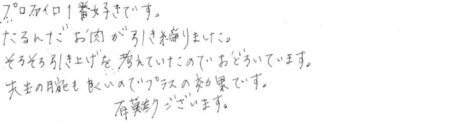 プロファイロ1番好きです。
たるんだお肉が引き締りました。
そろそろ引き上げを考えていたのでおどろいています。
夫の目蓋も良いのでプラスの効果です。
有難うございます。